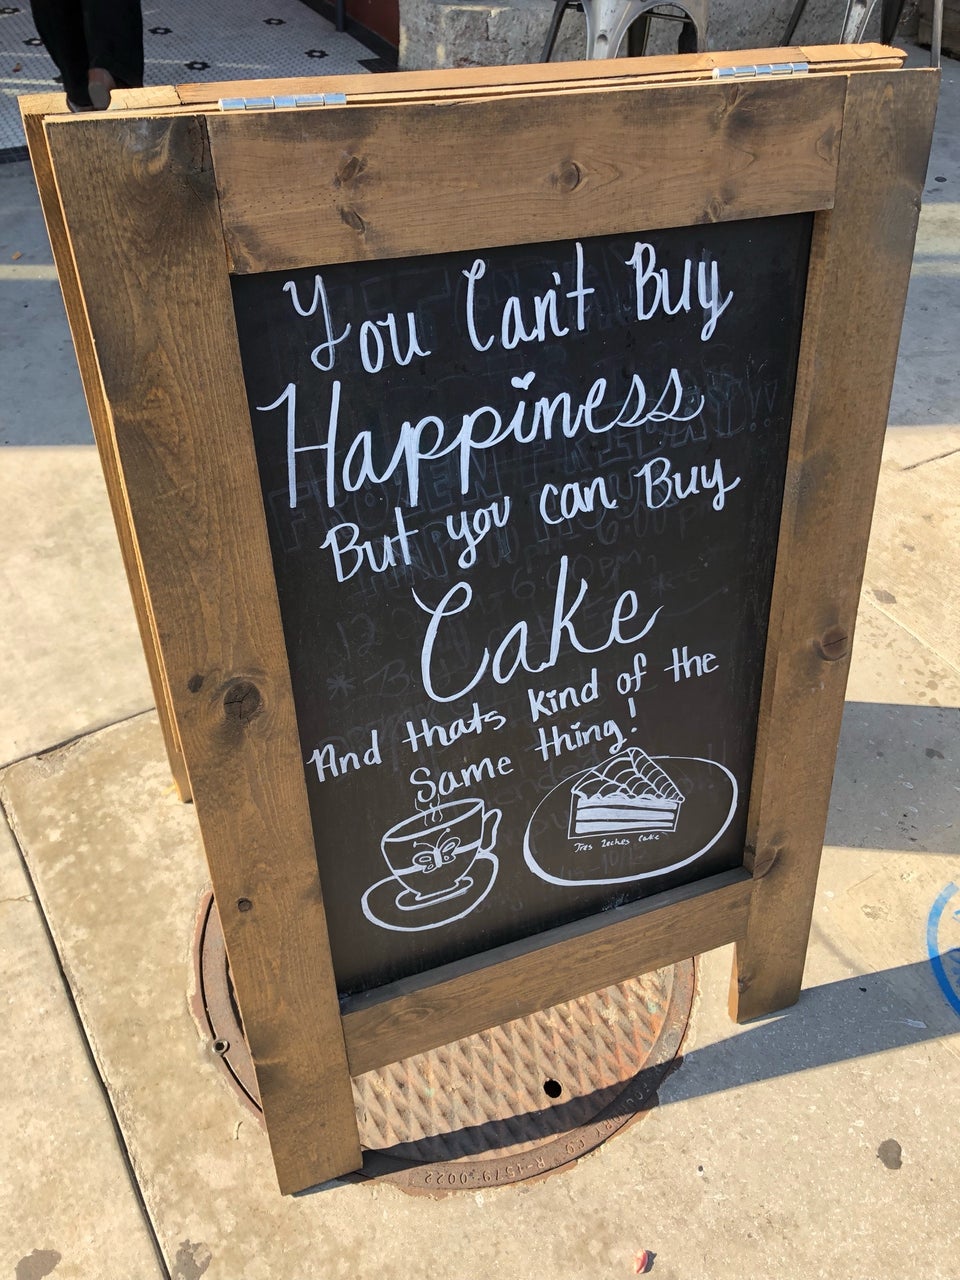 You Can't Buy
Happiness
But you can Buy
Cake
And thats kind of the
Same thing!
Tres leches cake
R-1579-0022